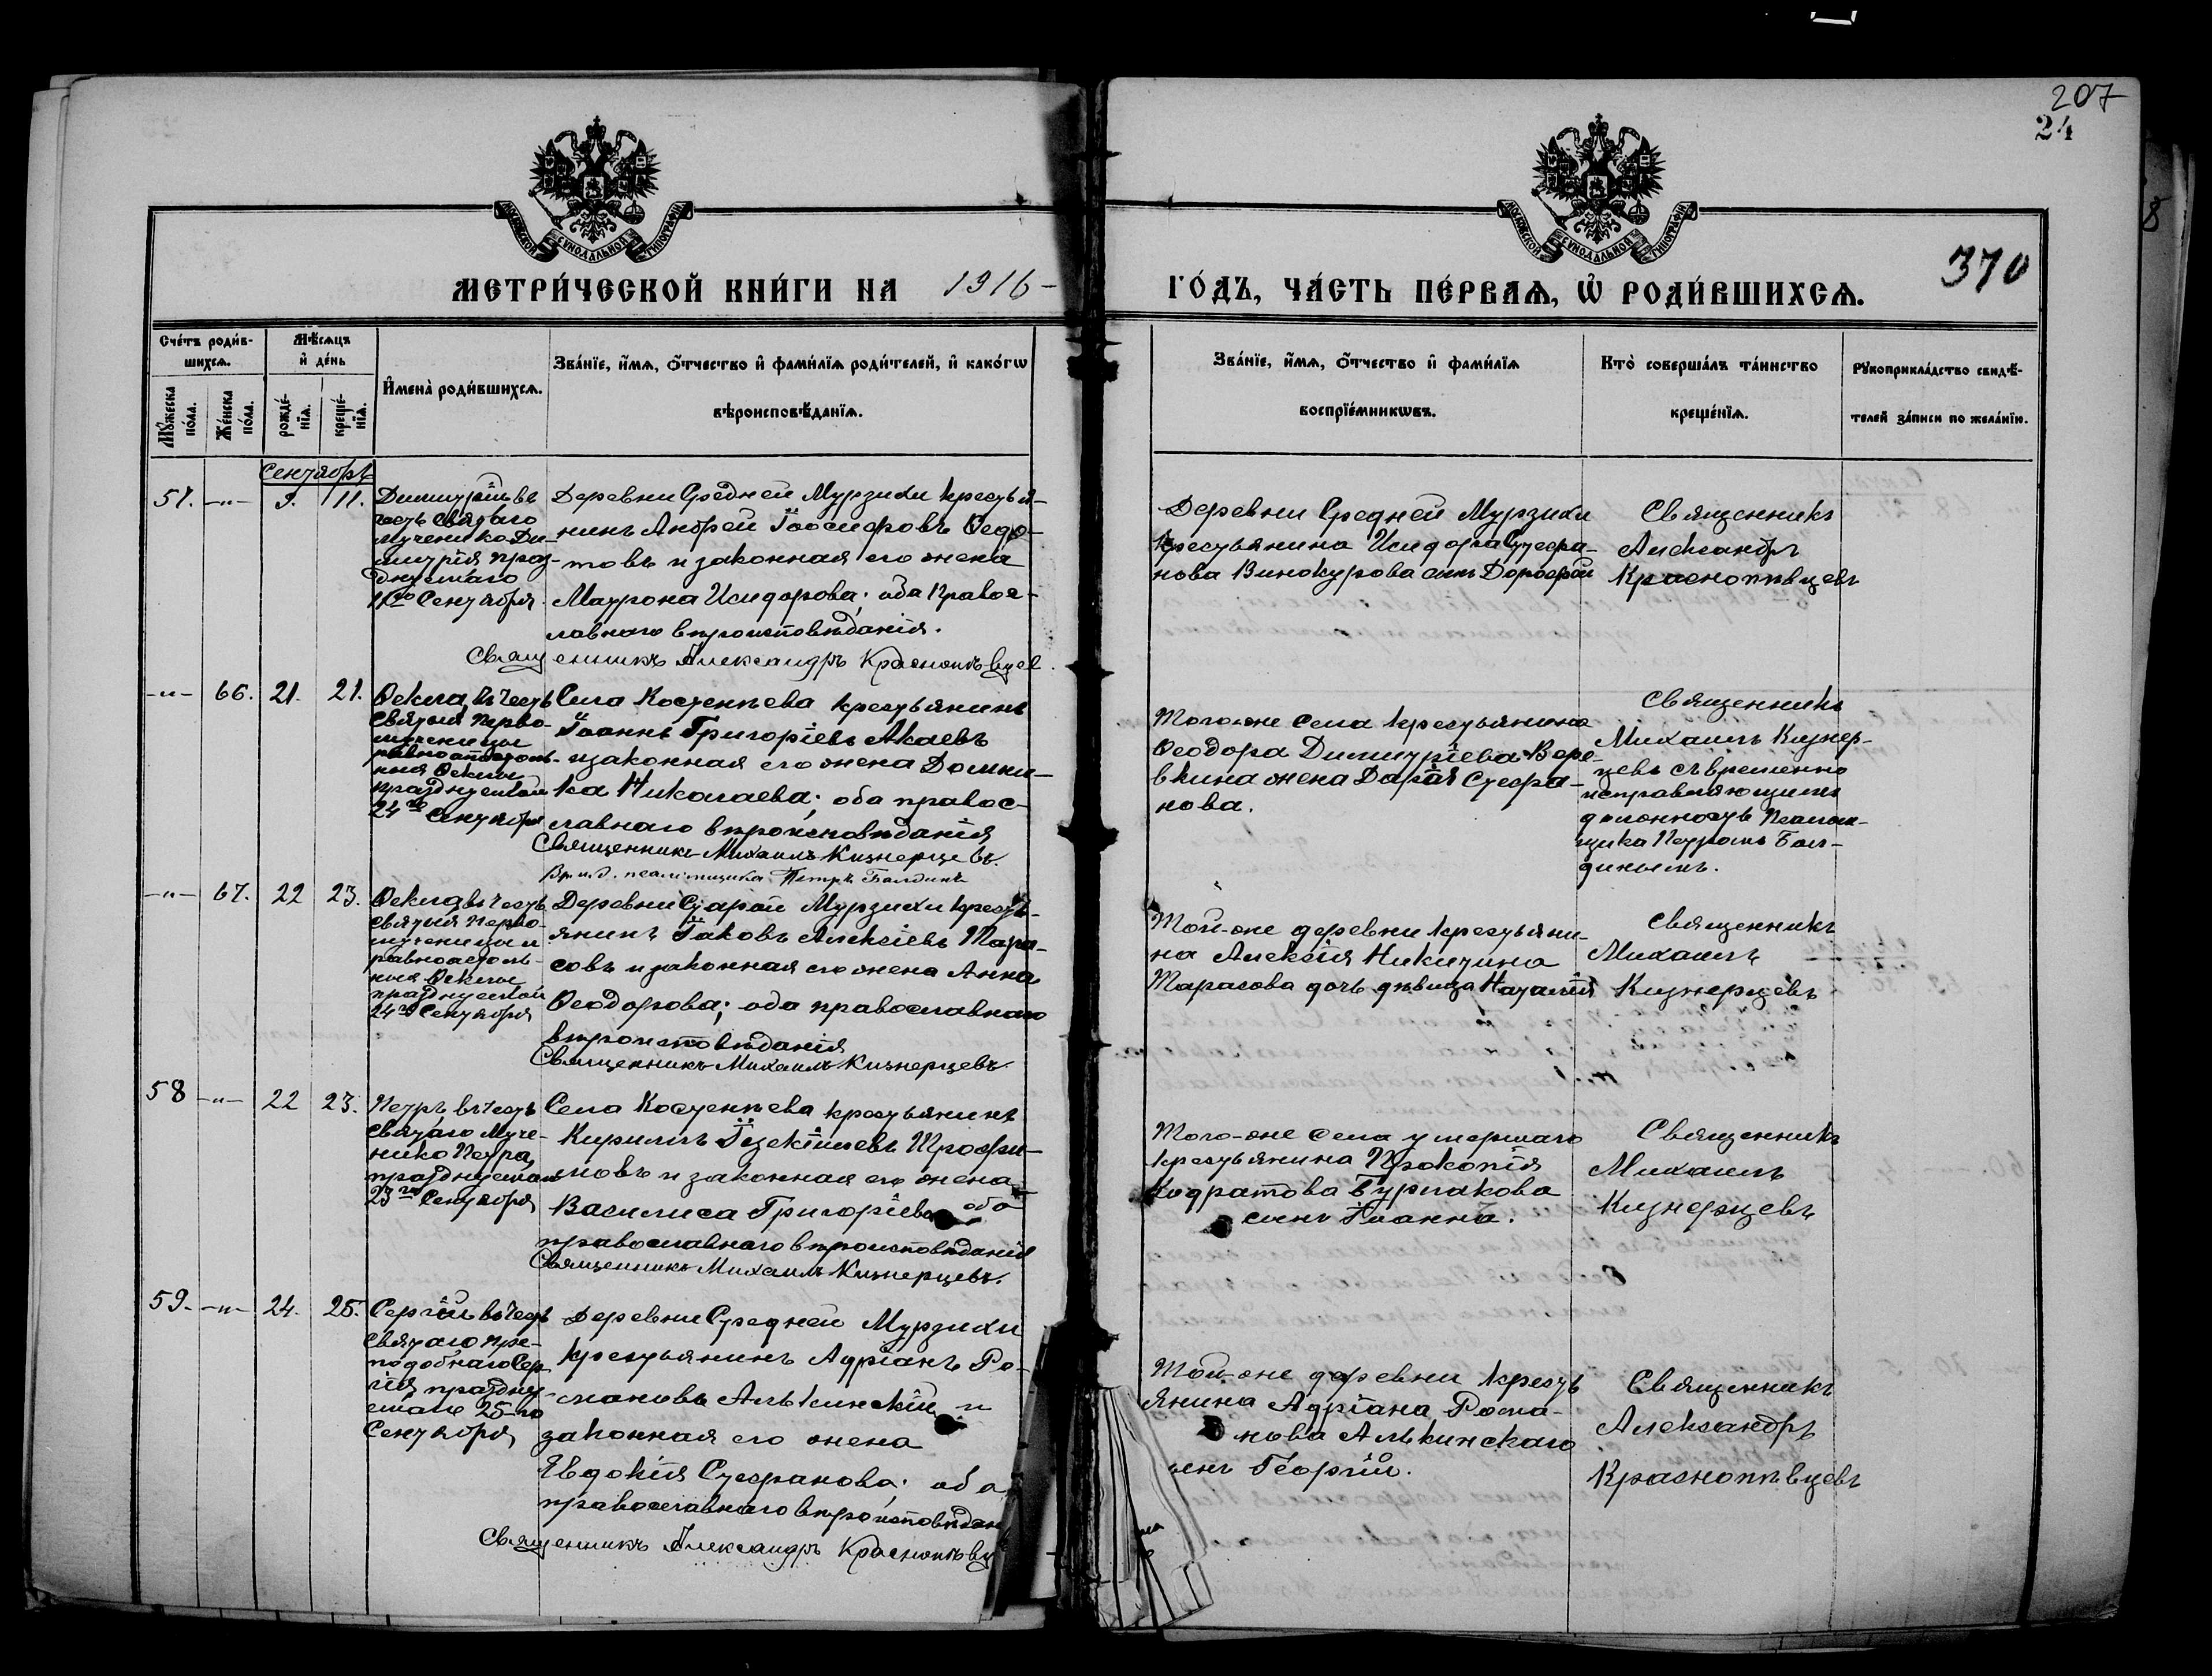 207
24
МОСКОВСКОЙ СУНОДАЛЬНОЙ ТИПОГРАФІИ
МОСКОВСКОЙ СУНОДАЛЬНОЙ ТИПОГРАФІИ
МЕТРИ́ЧЕСКОЙ КНИ́ГИ НА 1916-
ГО́ДЪ, ЧА́СТЬ ПЕ́РВАѦ, Ѡ҆ РОДИ́ВШИХСѦ.
370
Сче́тъ роди́в-
шихсѧ.
Мꙋ́жеска по́ла.
Же́нска по́ла.
Мѣ́сѧцъ
и҆ де́нь
рожде́-
нїѧ.
креще́-
нїѧ.
И҆мена̀ роди́вшихсѧ.
Зва́нїе, и҆́мѧ, ѻ҆́тчество и҆ фами́лїѧ роди́телей, и҆ како́гѡ
вѣроисповѣ́данїѧ.
Зва́нїе, и҆́мѧ, ѻ҆́тчество и҆ фами́лїѧ
воспрїе́мникѡвъ.
Кто̀ соверша́лъ та́инство
креще́нїѧ.
Рꙋкоприкла́дство свидѣ́-
телей за́писи по жела́нїю.
Сентябрь
57. -„- 9. 11.
Димитрій въ
честь святаго
мученика Ди-
митрія праз-
днуемаго
11го Сентября.
Деревни Средней Мурзихи крестья-
нинъ Андрей Іосифовъ Ѳедо-
товъ и законная его жена
Матрона Исидорова; оба Правос-
лавнаго вѣроисповѣданія.
Священникъ Александръ Краснопѣвцев.
Деревни Средней Мурзихи
Крестьянина Исидора Стефа-
нова Винокурова сынъ Дорофей
Священникъ
Александръ
Краснопѣвцевъ
-„- 66. 21. 21.
Ѳекла, въ честь
Святыя Перво-
мученицы
равноапостоль-
ныя Ѳеклы
празднуемой
24го Сентября
Села Костенѣева крестьянинъ
Іоаннъ Григоріевъ Акаевъ
и законная его жена Домни-
ка Николаева; оба правос-
лавнаго вѣроисповѣданія
Священникъ Михаилъ Кизнерцевъ.
Вр. и. д. псаломщика Петръ Балдинъ
Того-же села крестьянина
Ѳеодора Димитріева Вере-
вкина жена Дарія Стефа-
нова.
Священникъ
Михаилъ Кизнер-
цевъ съ временно
исправляющимъ
должность Псалом-
щика Петромъ Бал-
динымъ.
-„- 67. 22 23.
Ѳекла въ честь
Святыя Перво-
мученицы и
равноапостоль-
ныя Ѳеклы
празднуемой
24го Сентября
Деревни Старой Мурзихи кресть-
янинъ Іаковъ Алексіевъ Тара-
совъ и законная его жена Анна
Ѳеодорова; оба православнаго
вѣроисповѣданія
Священникъ Михаилъ Кизнерцевъ.
Той-же деревни крестьяни-
на Алексія Никитина
Тарасова дочь дѣвица Наталія
Священникъ
Михаилъ
Кизнерцевъ
58 -„- 22 23.
Петръ въ честь
Святаго Муче-
ника Петра,
празднуемаго
23го Сентября
Села Костенѣева крестьянинъ
Кириллъ Іезекіилевъ Трофи-
мовъ и законная его жена
Василиса Григоріева оба
православнаго вѣроисповѣданія
Священникъ Михаилъ Кизнерцевъ.
Того-же села умершаго
крестьянина Прокопія
Кодратова Бурлакова
сынъ Іоаннъ.
Священникъ
Михаилъ
Кизнерцевъ
59. -„- 24. 25.
Сергій въ честь
Святаго Пре-
подобнаго Сер-
гія праздну-
емаго 25-го
Сентября
Деревни Средней Мурзихи
крестьянинъ Адріанъ Ро-
мановъ Алькинскій и
законная его жена
Евдокія Стефанова; оба
православнаго вѣроисповѣдан
Священникъ Александръ Краснопѣвц
Той-же деревни кресть
янина Адріана Рома-
нова Алькинскаго
сынъ Георгій.
Священникъ
Александръ
Краснопѣвцевъ